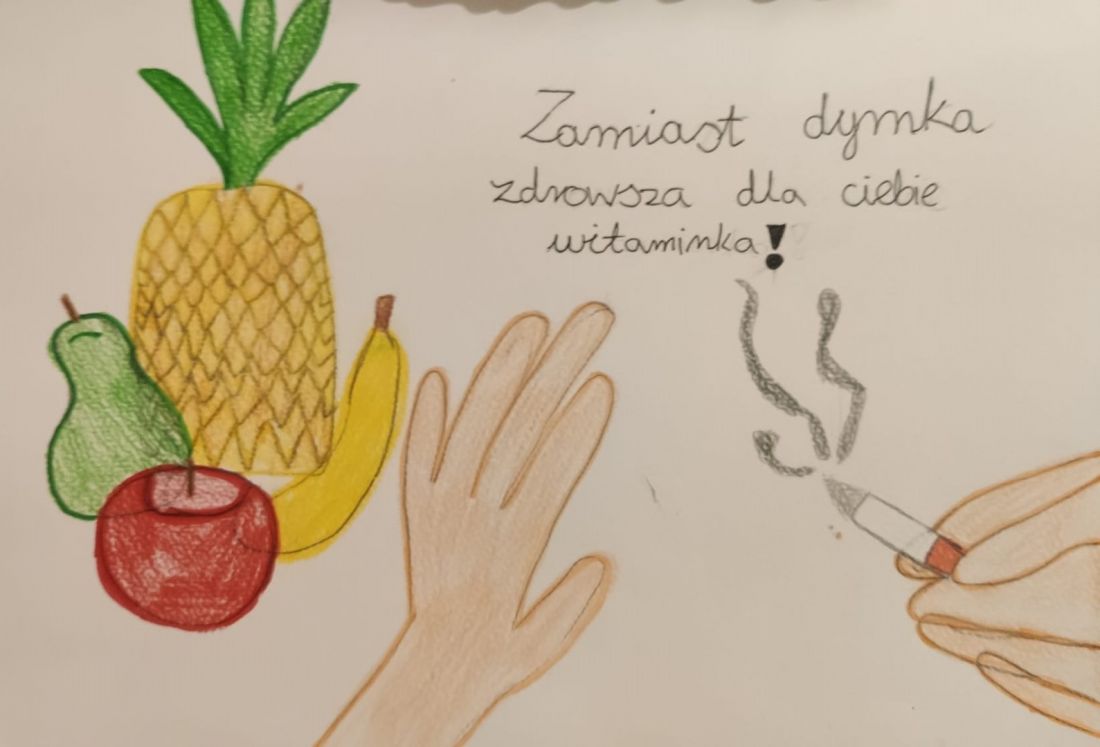 Zamiast dymka
zdrowsza dla ciebie
witaminka!